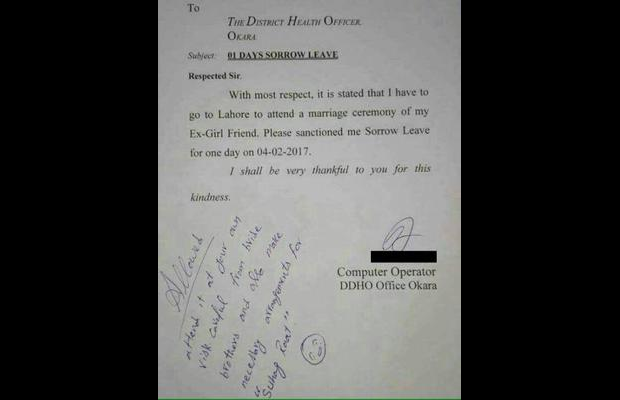 To
THE DISTRICT HEALTH OFFICER,
OKARA.
Subject: 01 DAYS SORROW LEAVE
Respected Sir,
With most respect, it is stated that I have to
go to Lahore to attend a marriage ceremony of my
Ex-Girl Friend. Please sanctioned me Sorrow Leave
for one day on 04-02-2017.
I shall be very thankful to you for this
kindness.
Computer Operator
DDHO Office Okara
Allowed
attend it at your own
risk careful from bride
brothers and also make
necessary arrangements for
" Suhag Raat "